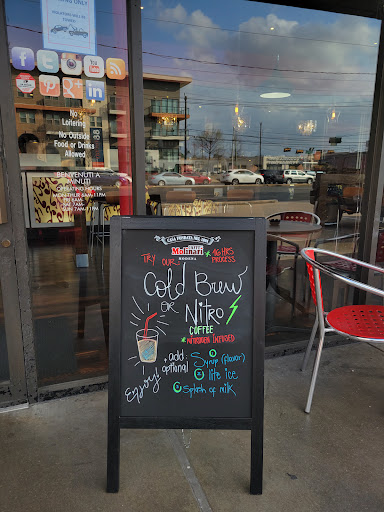 No
Loitering
No Outside
Food or Drinks
Allowed
BENVENUTI A
OPERATING HOURS
Molinari
TRY OUR
*16 HRS
PROCESS
Cold Brew
OR NITRO
COFFEE
*NITROGEN INFUSED
+ add
optional
Syrup (flavor)
lite ice
Splash of milk
Enjoy!